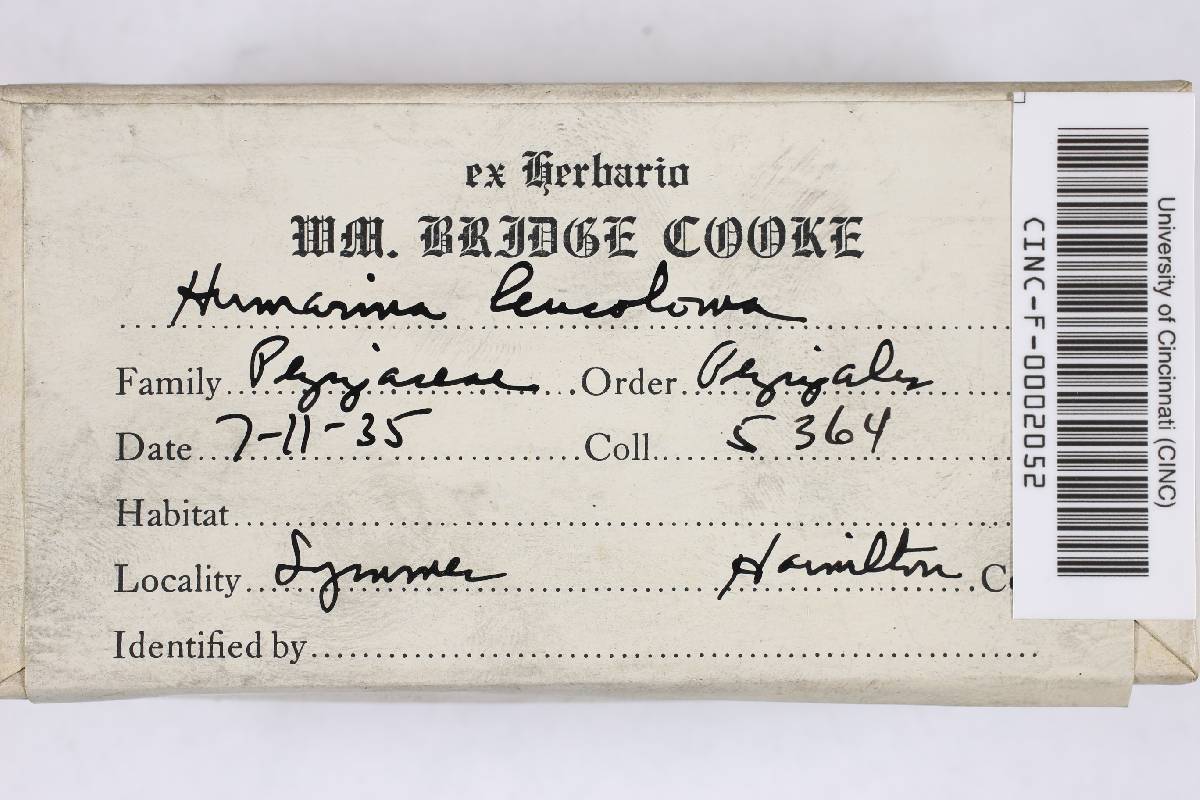 ex Herbario
WM. BRIDGE COOKE
Humarina leucoloma
Family Pezizaceae Order Pezizales
Date 7-11-35 Coll. 5364
Habitat
Locality Symmes Hamilton C
Identified by
University of Cincinnati (CINC)
CINC-F-0002052